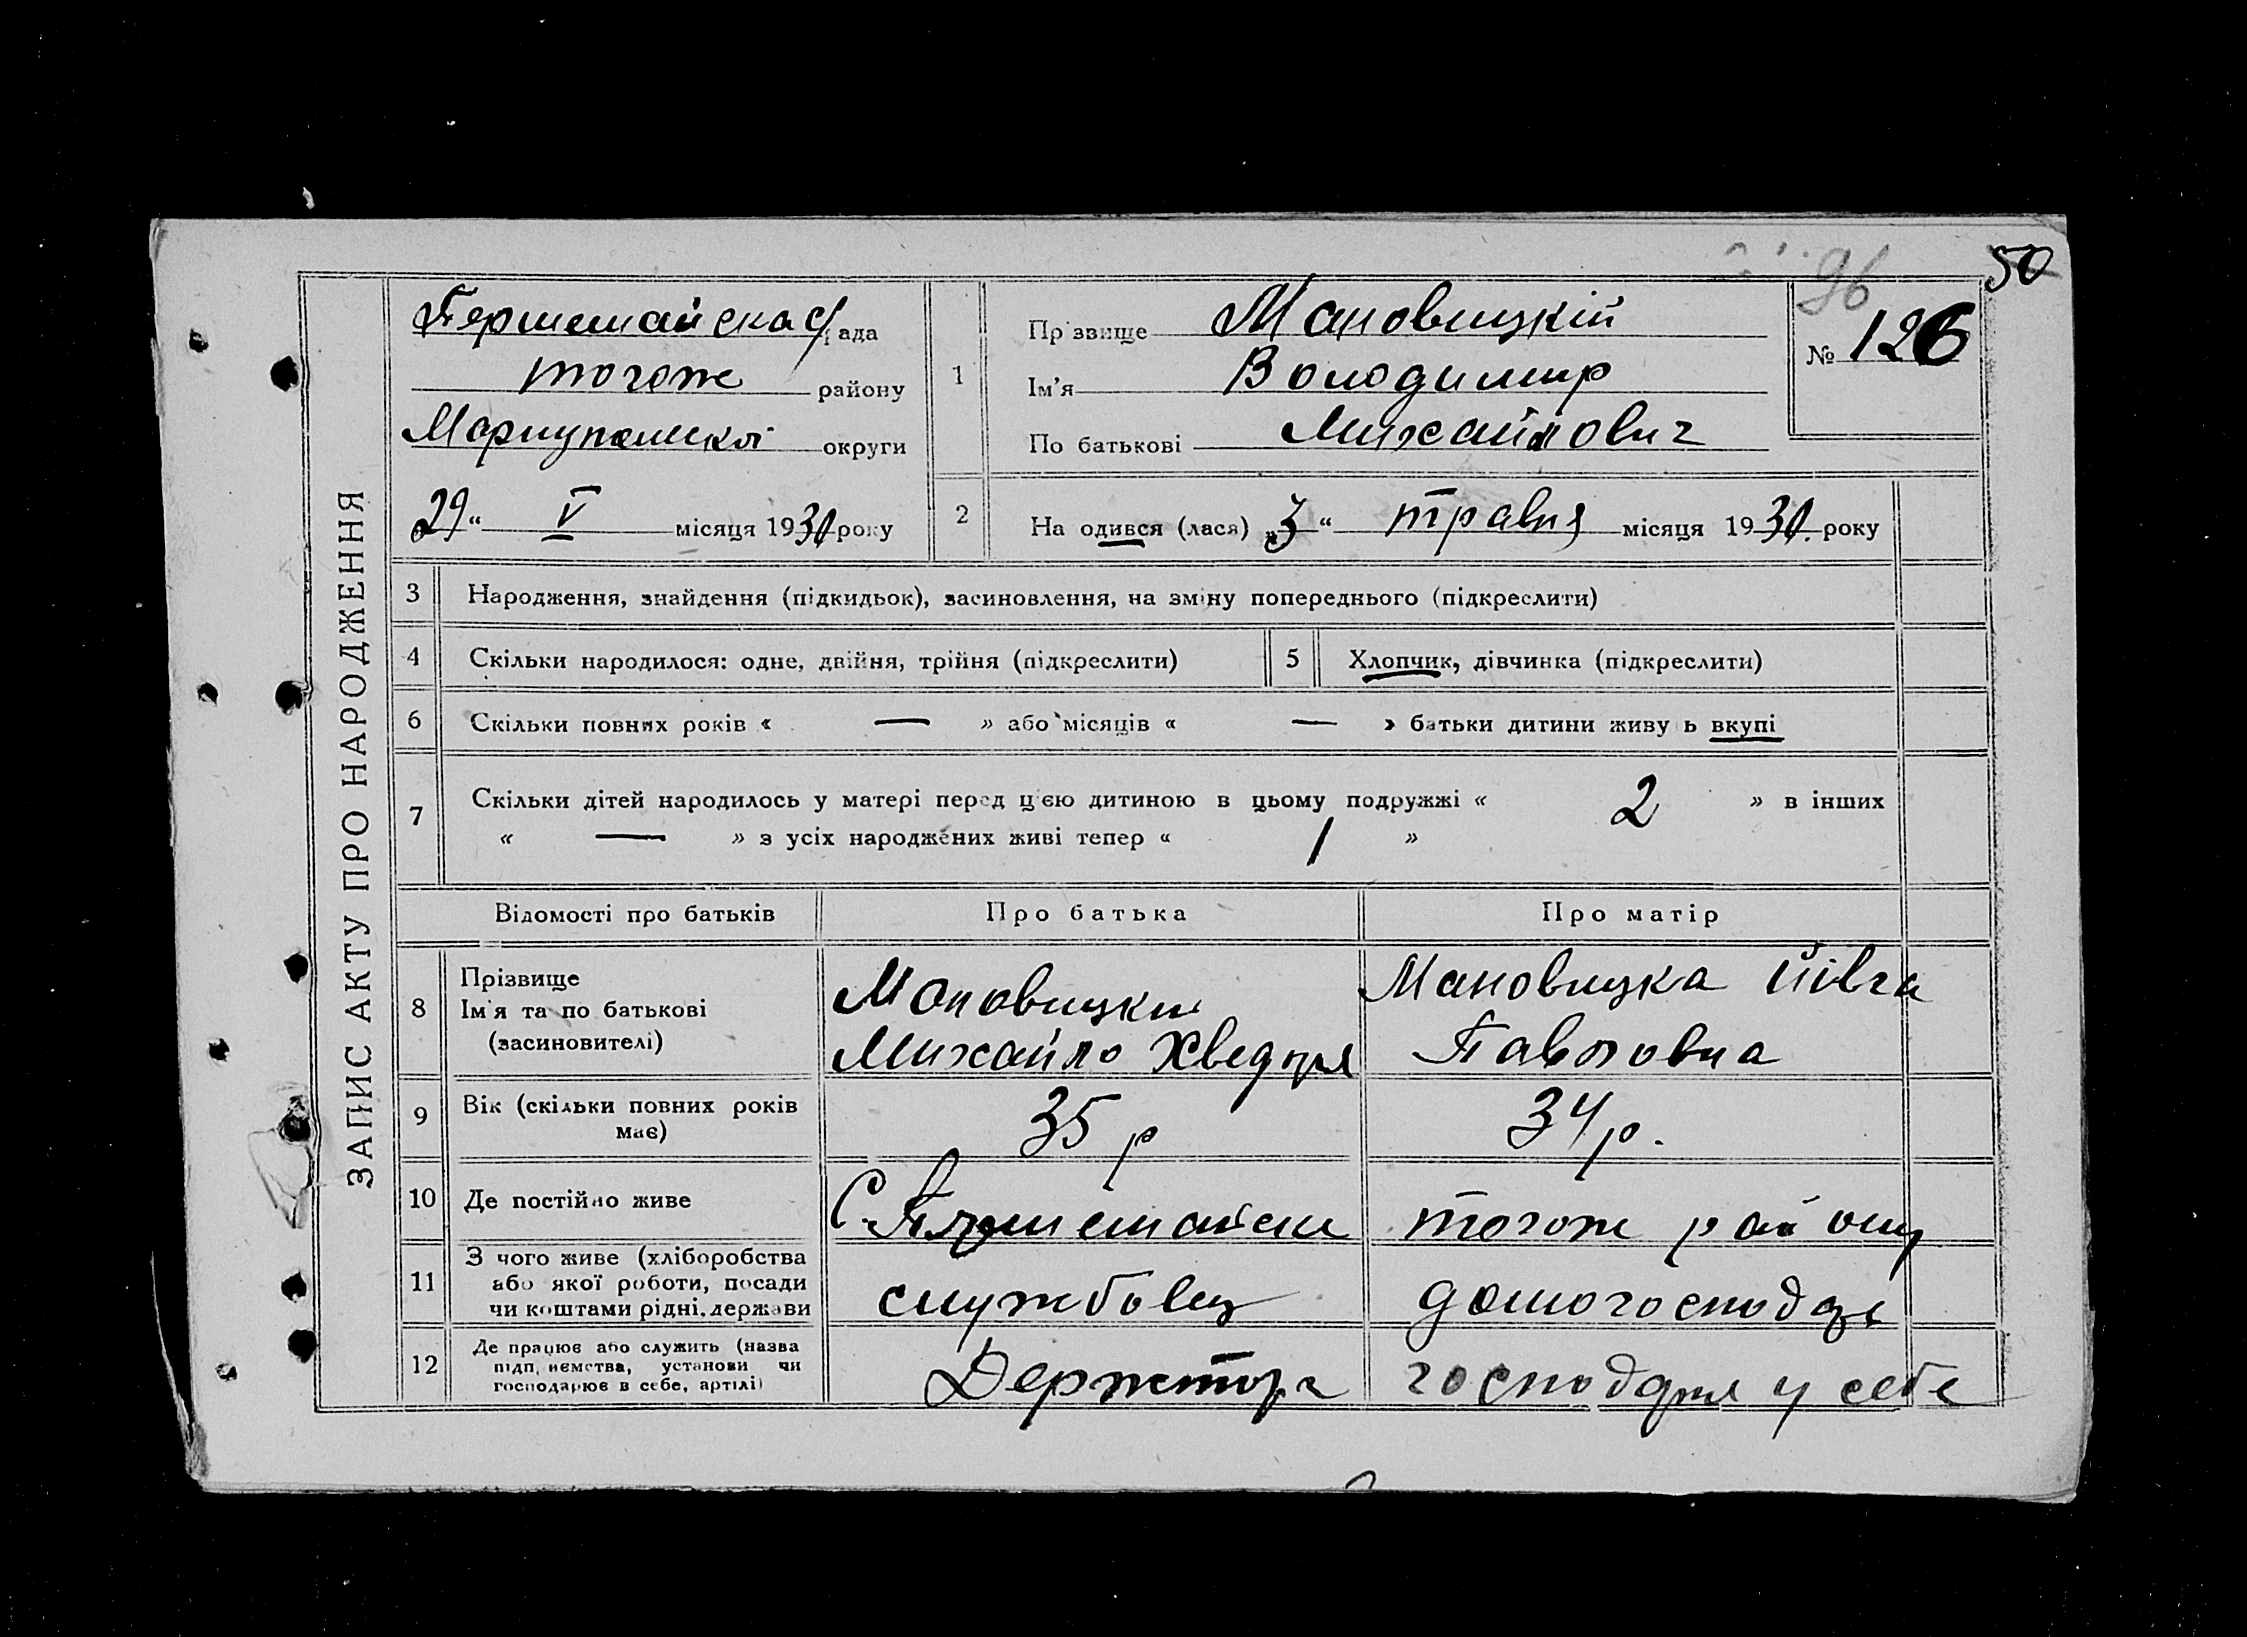 50
96
ЗАПИС АКТУ ПРО НАРОДЖЕННЯ
Першемайска с/рада
тогоже району
Мариупольскої округи
29 " V місяця 1930 року
1
Прізвище Мановицкій
Ім'я Володимир
По батькові Михайлович
№ 126
2
На одився (лася) „3 “ травня місяця 1930. року
3 Народження, знайдення (підкидьок), засиновлення, на зміну попереднього (підкреслити)
4 Скільки народилося: одне, двійня, трійня (підкреслити)
5 Хлопчик, дівчинка (підкреслити)
6 Скільки повних років « — » або місяців « — » батьки дитини живу ь вкупі
7 Скільки дітей народилось у матері перед цією дитиною в цьому подружжі « 2 » в інших
« — » з усіх народжених живі тепер « 1 »
Відомості про батьків Про батька Про матір
8 Прізвище
Ім'я та по батькові
(засиновителі)
Мановицкий
Михайло Хведоря
Мановицка Йівга
Павловна
9 Вік (скільки повних років
має)
35 р
34 р.
10 Де постійно живе
С. Першемайске
тогож району
11 З чого живе (хліборобства
або якої роботи, посади
чи коштами рідні, держави
службовец
домогосподарь
12 Де працює або служить (назва
підп, иємства, установи чи
господарює в себе, артілі)
Держторг
господаря у себе